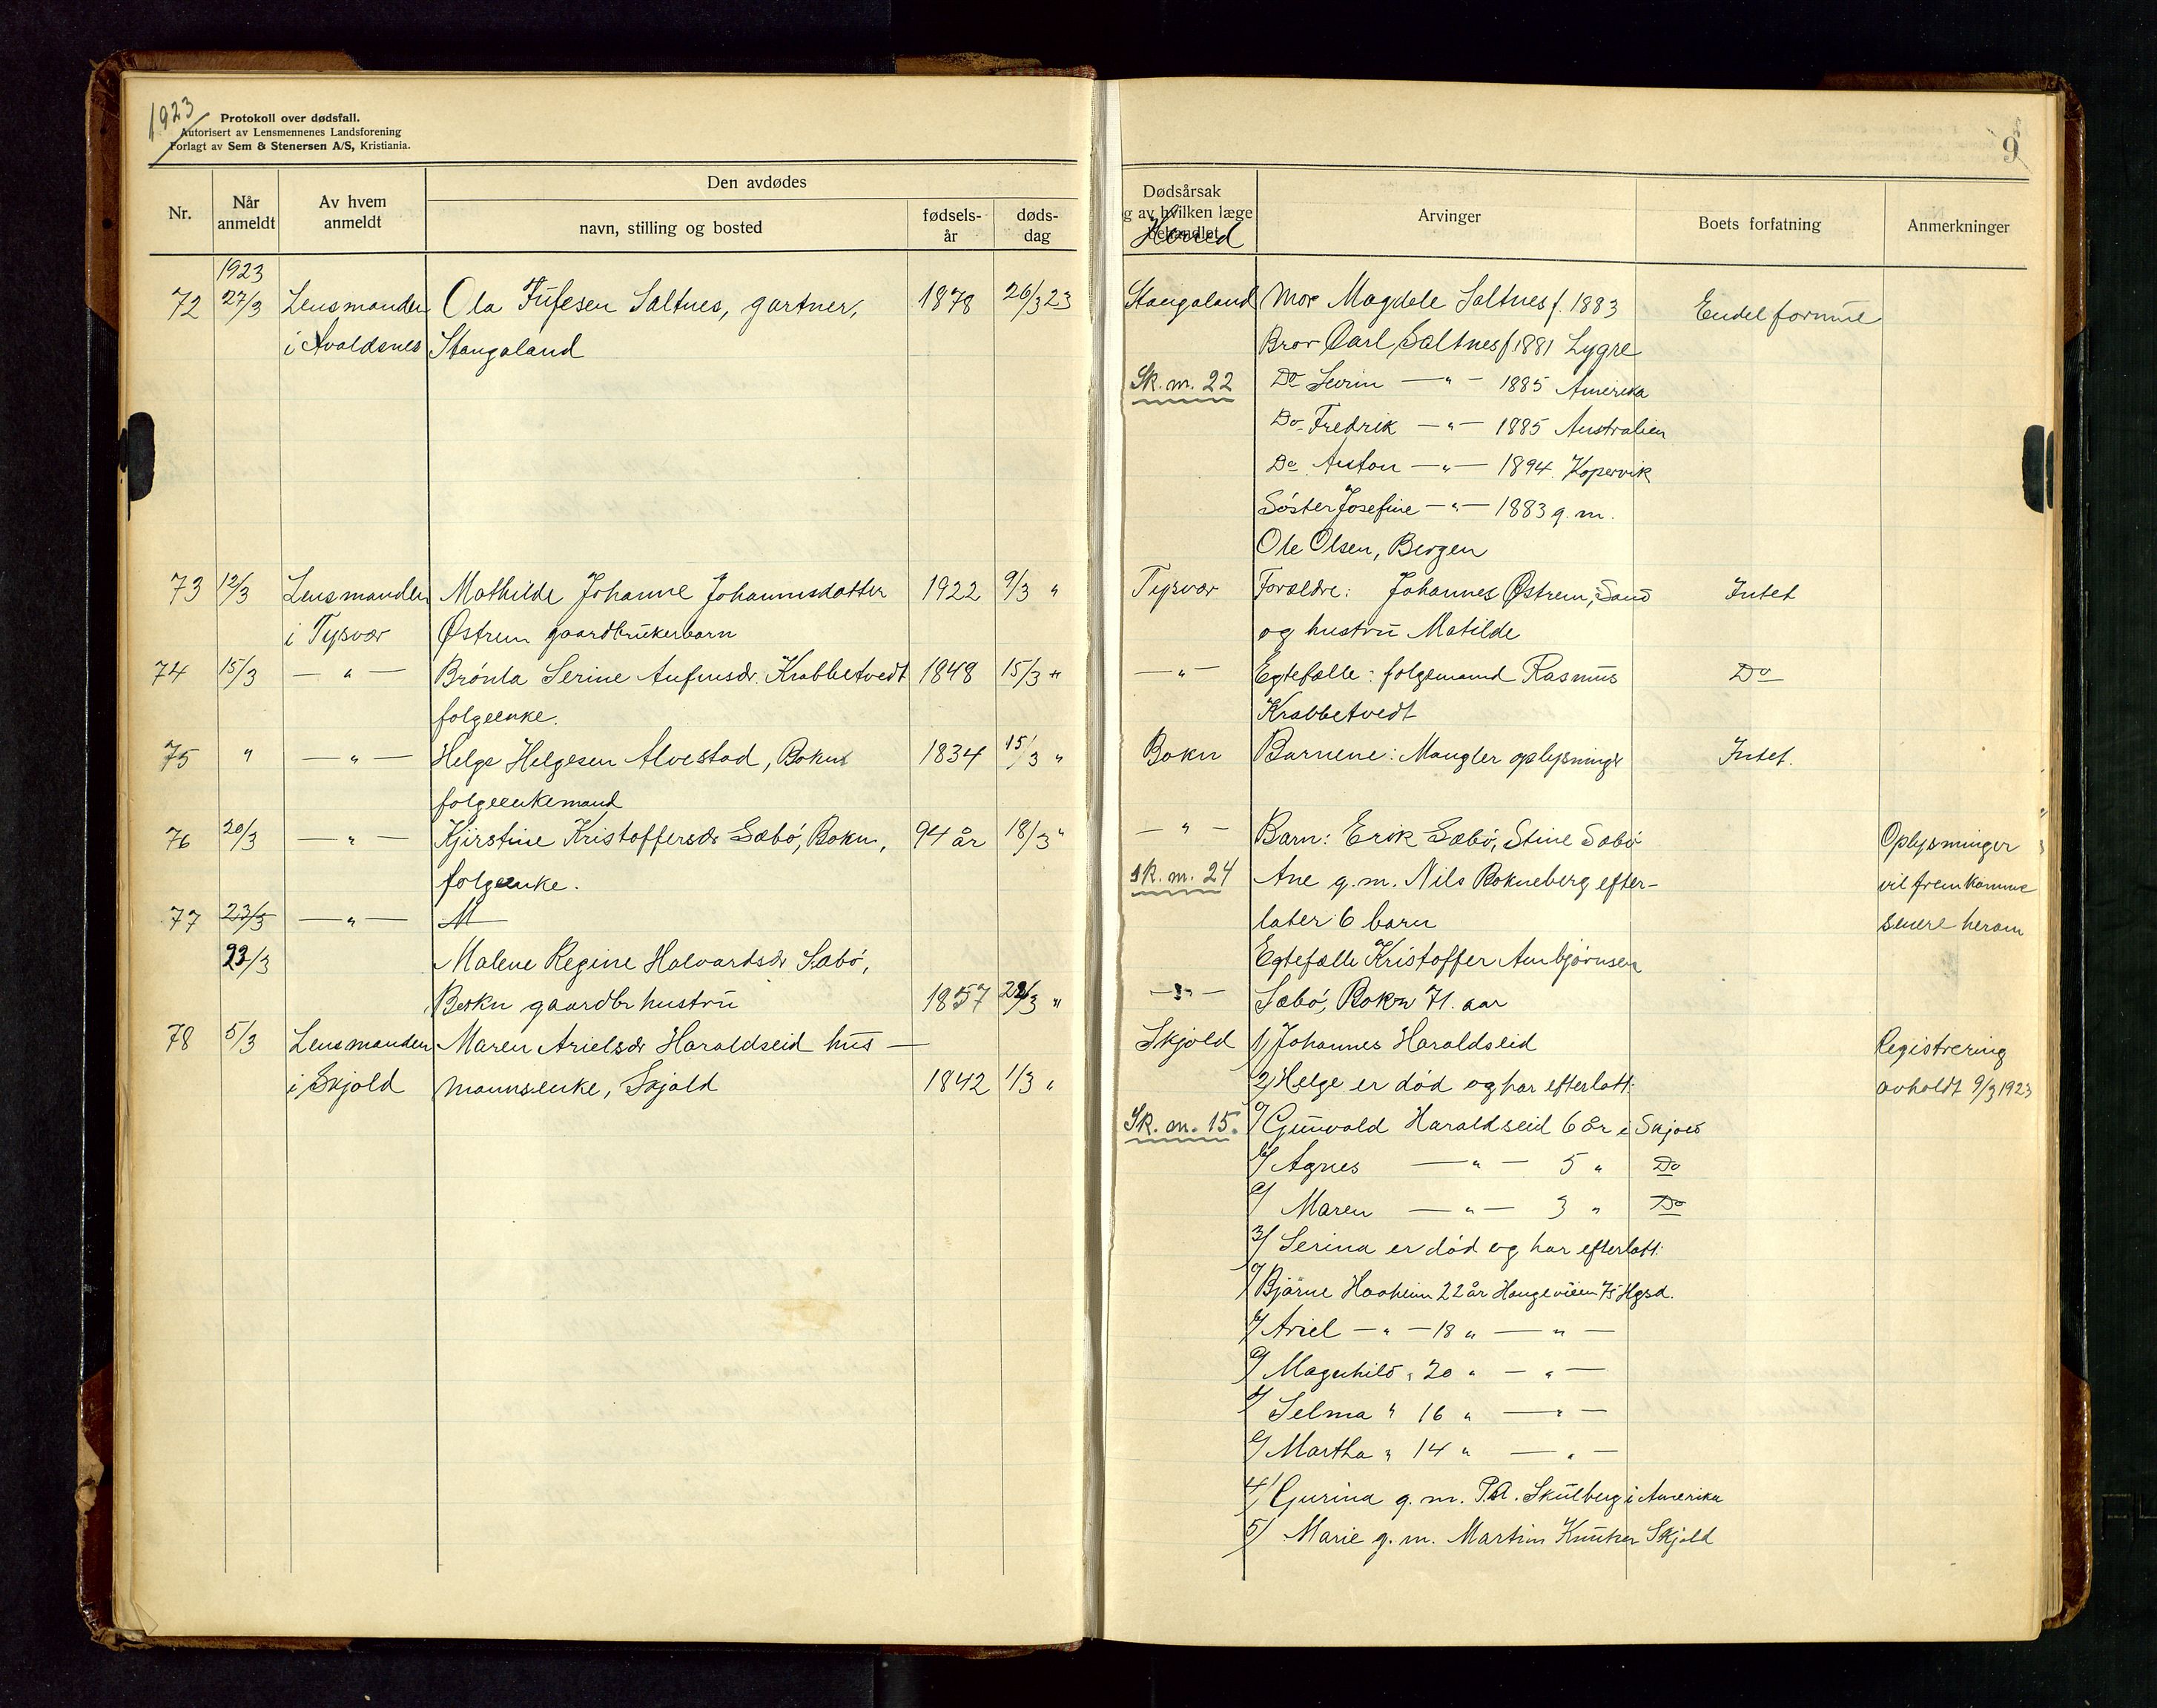 1923
Protokoll over dødsfall.
Autorisert av Lensmennenes Landsforening
Forlagt av Sem & Stenersen A/S, Kristiania.
Nr.
Når anmeldt
Av hvem anmeldt
Den avdødes
navn, stilling og bosted
fødsels-år
døds-dag
1923
72 27/3 Lensmanden Ola Saltnes, gartner, 1878 26/3 23
i Avaldsnes Stangaland
73 12/3 Lensmanden Mathilde Johanne Johannesdatter 1922 9/3 "
i Tysvær Østrem gaardbrukerbarn
74 15/3 — " — Serine Krabbetvedt 1848 15/3 "
folgeenke.
75 " — " — Helge Helgesen Alvestad, Bokn 1834 15/3 "
folgeenkemand
76 20/3 — " — Kjirstine Kristoffersdr Sæbö, Bokn, 94 år 18/3 "
folgeenke.
77 23/3 — " — M
23/3 Malene Regine Halvardsdr Sæbö,
Bokn gaardbr hustru 1857 22/3 "
78 5/3 Lensmanden Maren Arielsdr Haraldseid hus —
i Skjold mannsenke, Skjold 1842 1/3 "
9
Dødsårsak
og av hvilken læge
behandlet
Herred
Arvinger
Boets forfatning
Anmerkninger
Stangaland Mor Magdele Saltnes f. 1883 Endel formue
Bror Carl Saltnes f 1881 Lygre
Sk. m. 22 Do Severin — " — 1885 Amerika
Do Fredrik — " — 1885 Australien
Do Anton — " — 1894 Kopervik
Söster Josefine — " — 1883 g. m.
Ole Olsen, Bergen
Tysvær Forældre: Johannes Østrem, Sand Intet
og hustru Matilde
— " — Egtefælle: folgemand Rasmus Do
Krabbetvedt
Bokn Barnene: Mangler oplysninger Intet.
— " — Barn: Erik Sæbö, Stine Sæbö Oplysninger
Sk. m. 24 Ane g. m. Nils Bokneberg efter- vil fremkomme
later 6 barn senere herom
Egtefælle Kristoffer Ambjörnsen
— " — Sæbö, Bokn 71. aar
Skjold 1) Johannes Haraldseid Registrering
2) Helge er död og har efterlatt: avholdt 9/3 1923
Sk. m. 15. a/ Gunvald Haraldseid 6 år i Skjold
b/ Agnes — " — 5 " Do
c/ Maren — " — 3 " Do
3/ Serina er död og har efterlatt:
a/ Bjarne Haaheim 22 år Haugeveien 75 Hgsd.
b/ Ariel — " — 18 " — " —
c/ Magnhild " 20 " — " —
d/ Selma " 16 " — " —
e/ Martha " 14 " — " —
4/ Gurina g. m. P.A. Skulberg i Amerika
5/ Marie g. m. Martin Knutsen Skjold